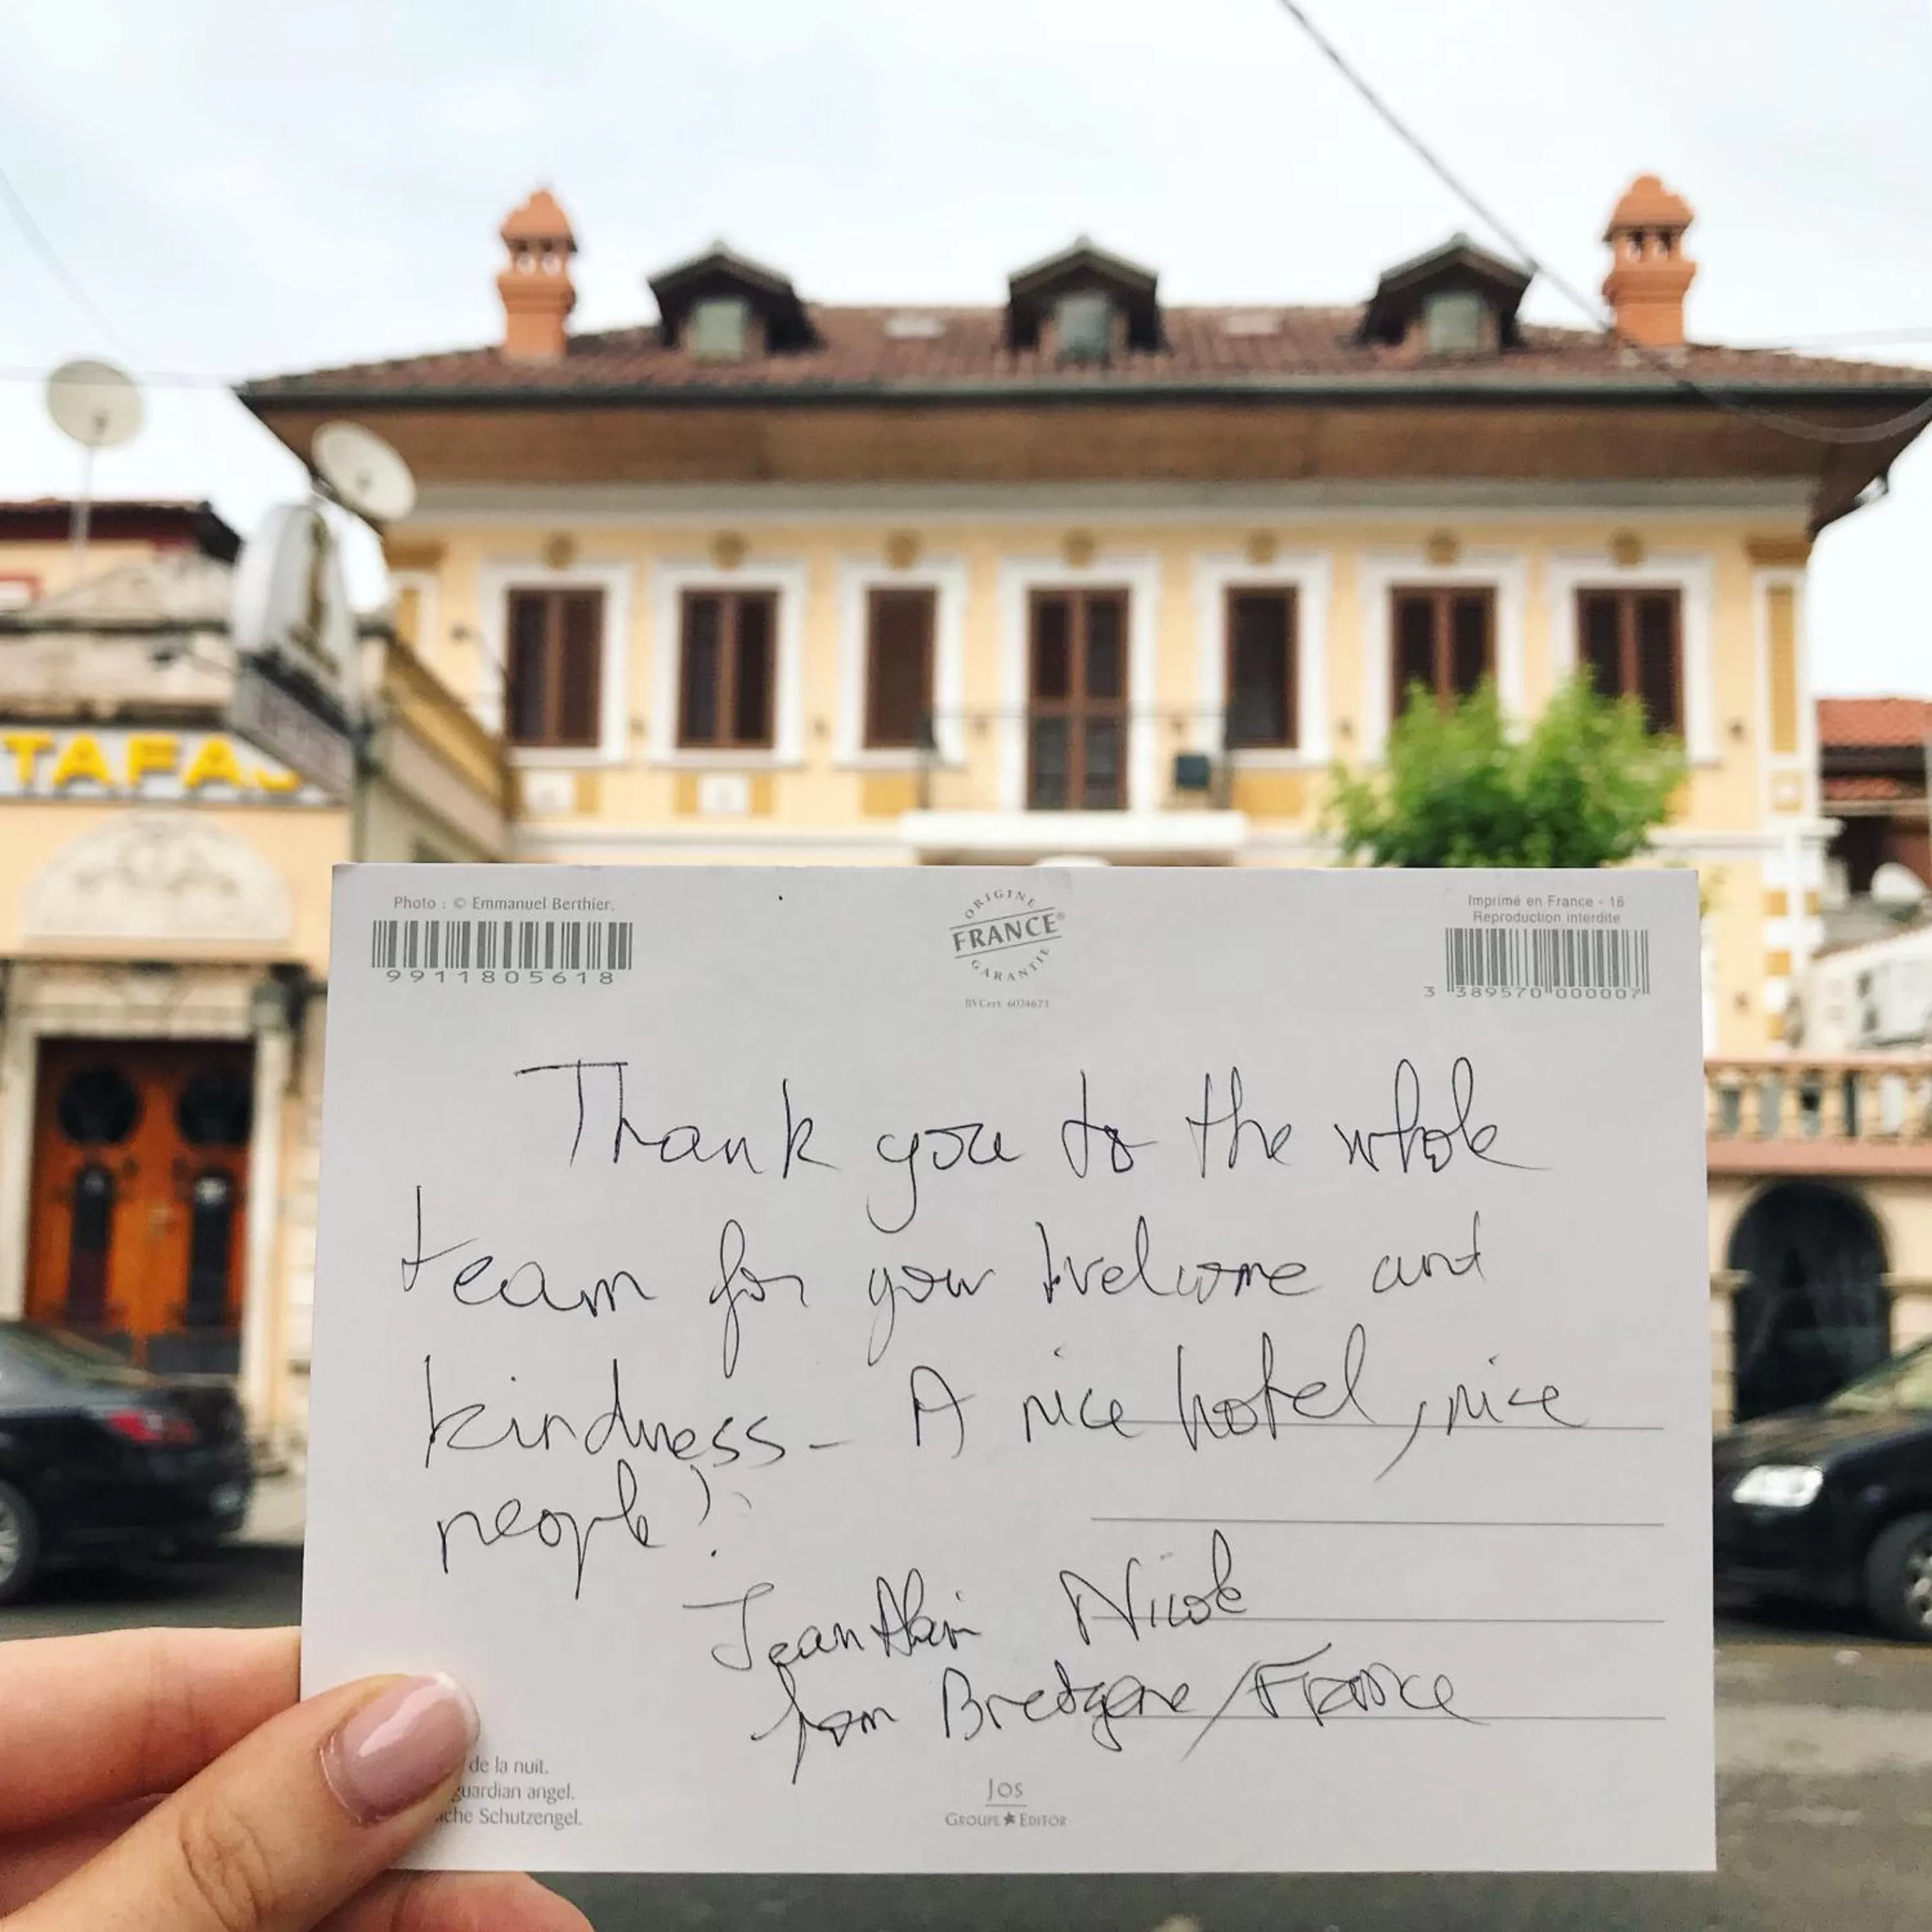 TAFA
Photo : © Emmanuel Berthier.
9911805618
ORIGINE
FRANCE®
GARANTIE
BVCert. 6024673
Imprimé en France - 16
Reproduction interdite
3 389570 000007
Thank you to the whole
team for your welcome and
kindness_ A nice hotel, nice
people!
Jean Alain Nicole
from Bretagne/France
de la nuit.
guardian angel.
che Schutzengel.
JOS
GROUPE ★ EDITOR